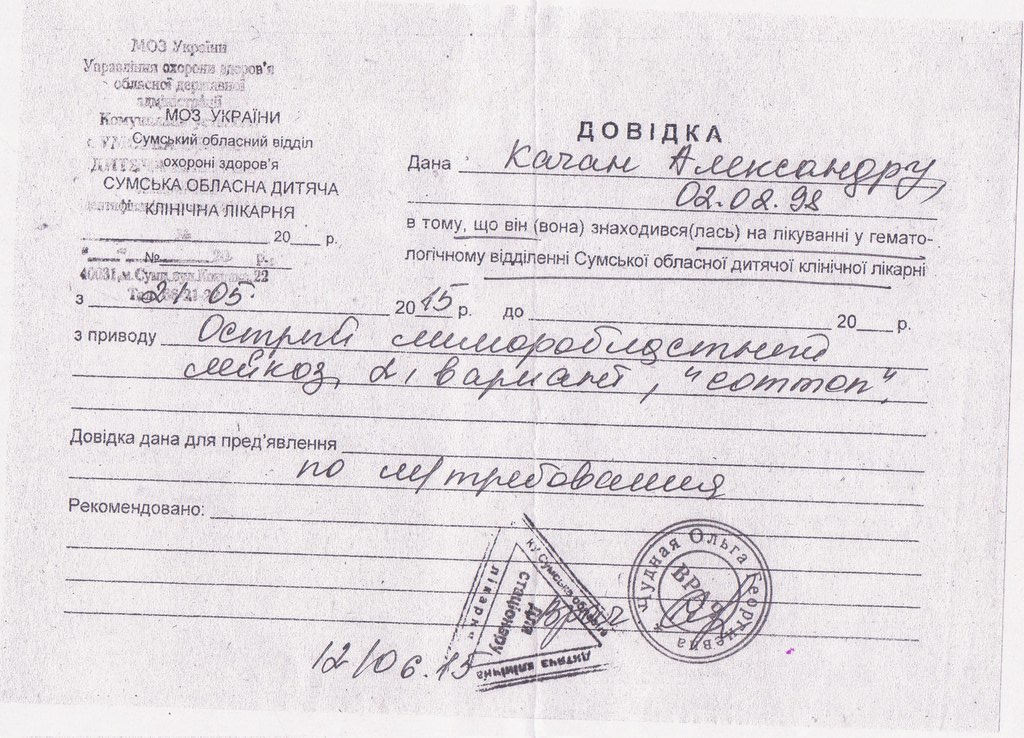 МОЗ України
Управління охорони здоров'я
обласної державної
адміністрації
МОЗ УКРАЇНИ
Сумський обласний відділ
охороні здоров'я
СУМСЬКА ОБЛАСНА ДИТЯЧА
КЛІНІЧНА ЛІКАРНЯ
20___ р.
№
40031, м.Суми, вул. 22
ДОВІДКА
Дана Качан Александру,
02.02.98
в тому, що він (вона) знаходився(лась) на лікуванні у гемато-
логічному відділенні Сумської обласної дитячої клінічної лікарні
з 21.05. 2015 р. до 20___ р.
з приводу Острый лимфобластный
лейкоз, L1 вариант, "common".
Довідка дана для пред'явлення
по м/требования
Рекомендовано:
12/06.15
КУ Сумська обласна
дитяча клінічна
лікарня
Для
стаціонару
Чудная Ольга Георгиевна
ВРАЧ